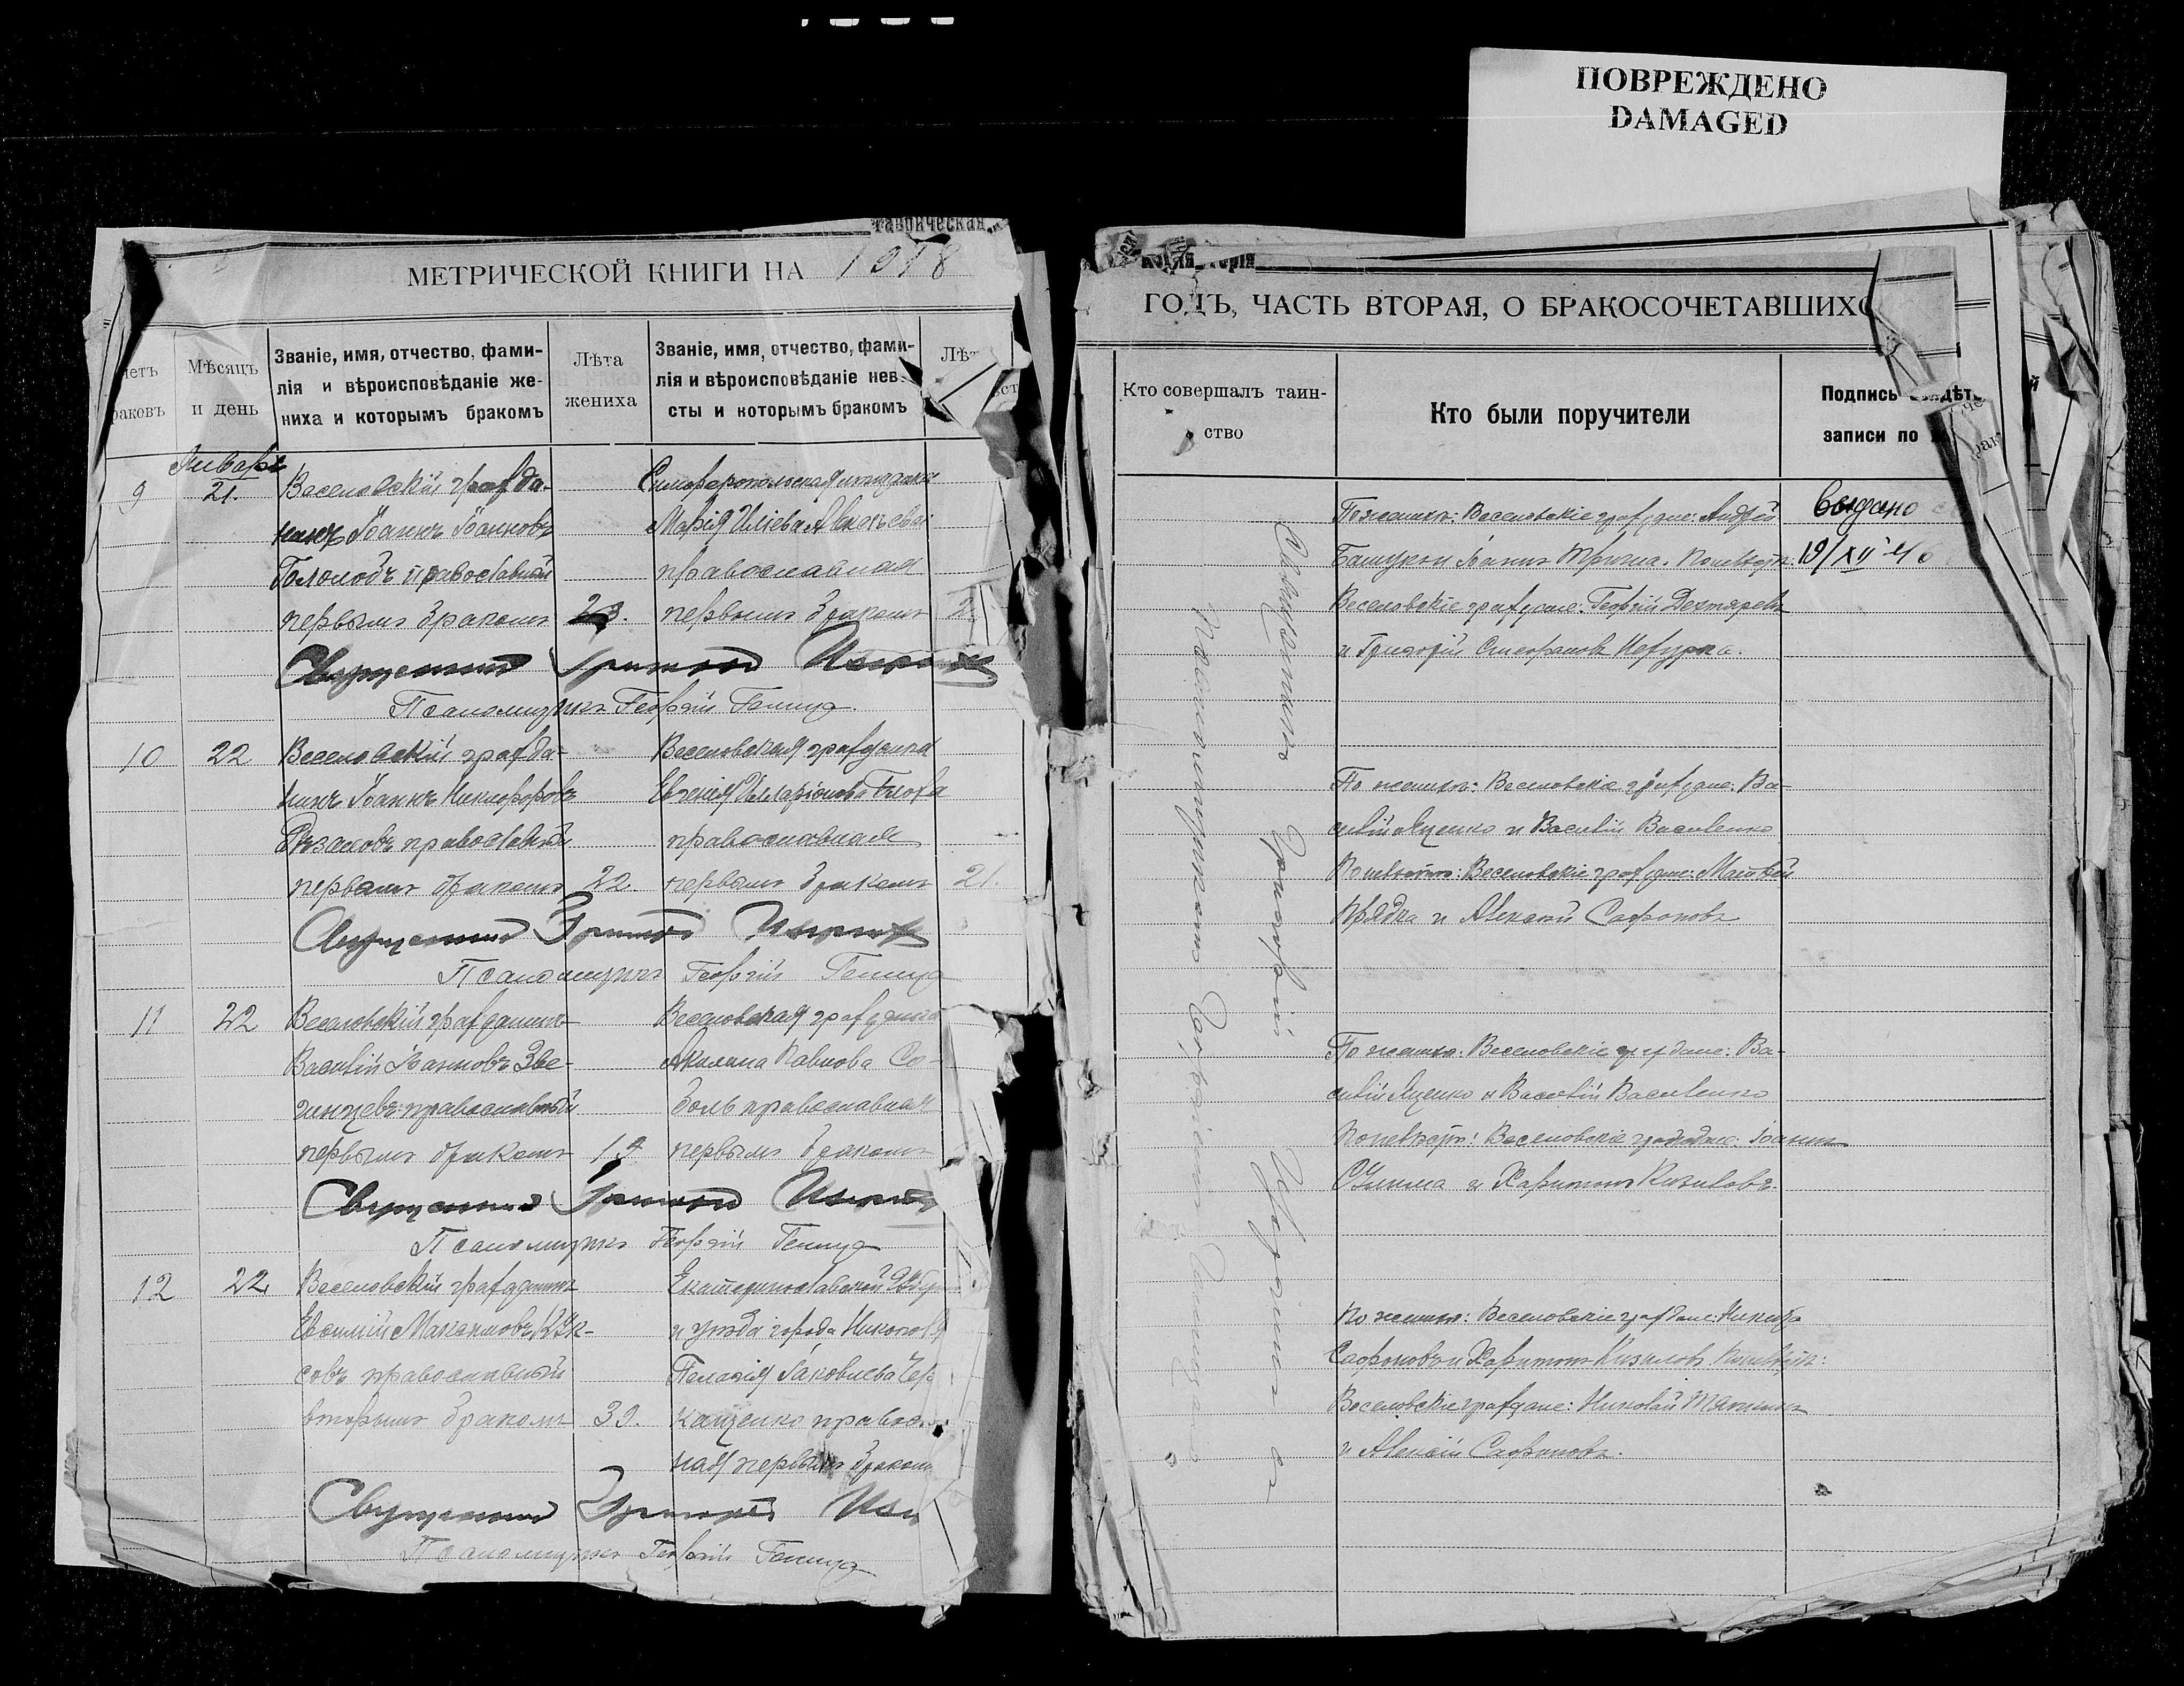 ПОВРЕЖДЕНО
DAMAGED
Таврическая
МЕТРИЧЕСКОЙ КНИГИ НА 1918
Мѣсяцъ и день
Званіе, имя, отчество, фами-
лія и вѣроисповѣданіе же-
ниха и которымъ бракомъ
Лѣта
жениха
Званіе, имя, отчество, фами-
лія и вѣроисповѣданіе нев
сты и которымъ бракомъ
Январь
9 21. Веселовскій гражда-
нинъ Іоаннъ Іоанновъ
Гололобъ православный
первымъ бракомъ 23.
Марія Илієва
православная
первымъ бракомъ 2
Священникъ Григорій
Псаломщикъ Георгій Геница
10 22 Веселовскій гражда-
нинъ Іоаннъ Никифоровъ
православный
первымъ бракомъ 22.
Веселовская гражданка
Евгенія Илларіонова Блоха
православная
первымъ бракомъ 21.
Священникъ Григорій
Псаломщикъ Георгій Геница
11 22 Веселовскій гражданинъ
Василій Іоанновъ Зве-
гинцевъ православный
первымъ бракомъ
Веселовская гражданка
Акилина Павлова Со-
боль православная
первымъ бракомъ
Священникъ Григорій
Псаломщикъ Георгій Геница
12 22 Веселовскій гражданинъ
Евфимій Максимовъ Кук-
совъ православный
вторымъ бракомъ 39.
Екатеринославской губерн
и уѣзда города Никополя
Пелагія Іаковлева Чер
каценко правос
ная первымъ бракомъ
Священникъ Григорій
Псаломщикъ Георгій Геница
ГОДЪ, ЧАСТЬ ВТОРАЯ, О БРАКОСОЧЕТАВШИХС
Кто совершалъ таин-
ство
Кто были поручители
Подпись
записи по
Священникъ Григорій
Псаломщикъ Георгій Геница
По женихѣ: Веселовскіе граждане: Андрей
Іоаннъ По невѣстѣ:
Веселовскіе граждане: Георгій Дехтяревъ
и Григорій Стефановъ
выдано
19/XII
По женихѣ: Веселовскіе граждане: Ва-
силій Яценко и Василій Василенко
По невѣстѣ: Веселовскіе граждане: Матвей
Прядка и Алексій Сафоновъ
По женихѣ: Веселовскіе граждане: Ва-
силій Яценко и Василій Василенко
По невѣстѣ: Веселовскіе граждане: Іоаннъ
и Харитонъ Кизиловъ.
По женихѣ: Веселовскіе граждане: Никита
Сафоновъ и Харитонъ Кизиловъ По невѣстѣ:
Веселовскіе граждане: Николай
и Алексій Сафоновъ.